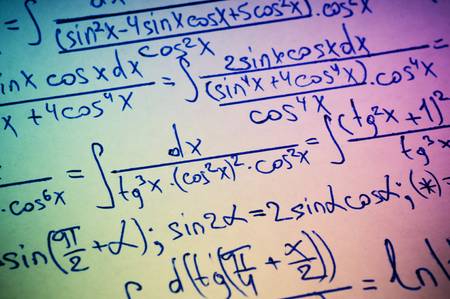 = ∫ dx / ((sin²x-4sinxcosx+5cos²x)/cos²x · cos²x)
inx cosxdx / x+4cos⁴x = ∫ 2sinxcosxdx / ((sin⁴x+4cos⁴x)/cos⁴x · cos⁴x) =
/ ·cos⁶x = ∫ dx / tg³x·(cos²x)²·cos²x = ∫ (tg²x+1)² / tg³x
sin(π/2+α); sin2α=2sinαcosα; (*)=
∫ d(tg(π/4+x/2)) / = ln|